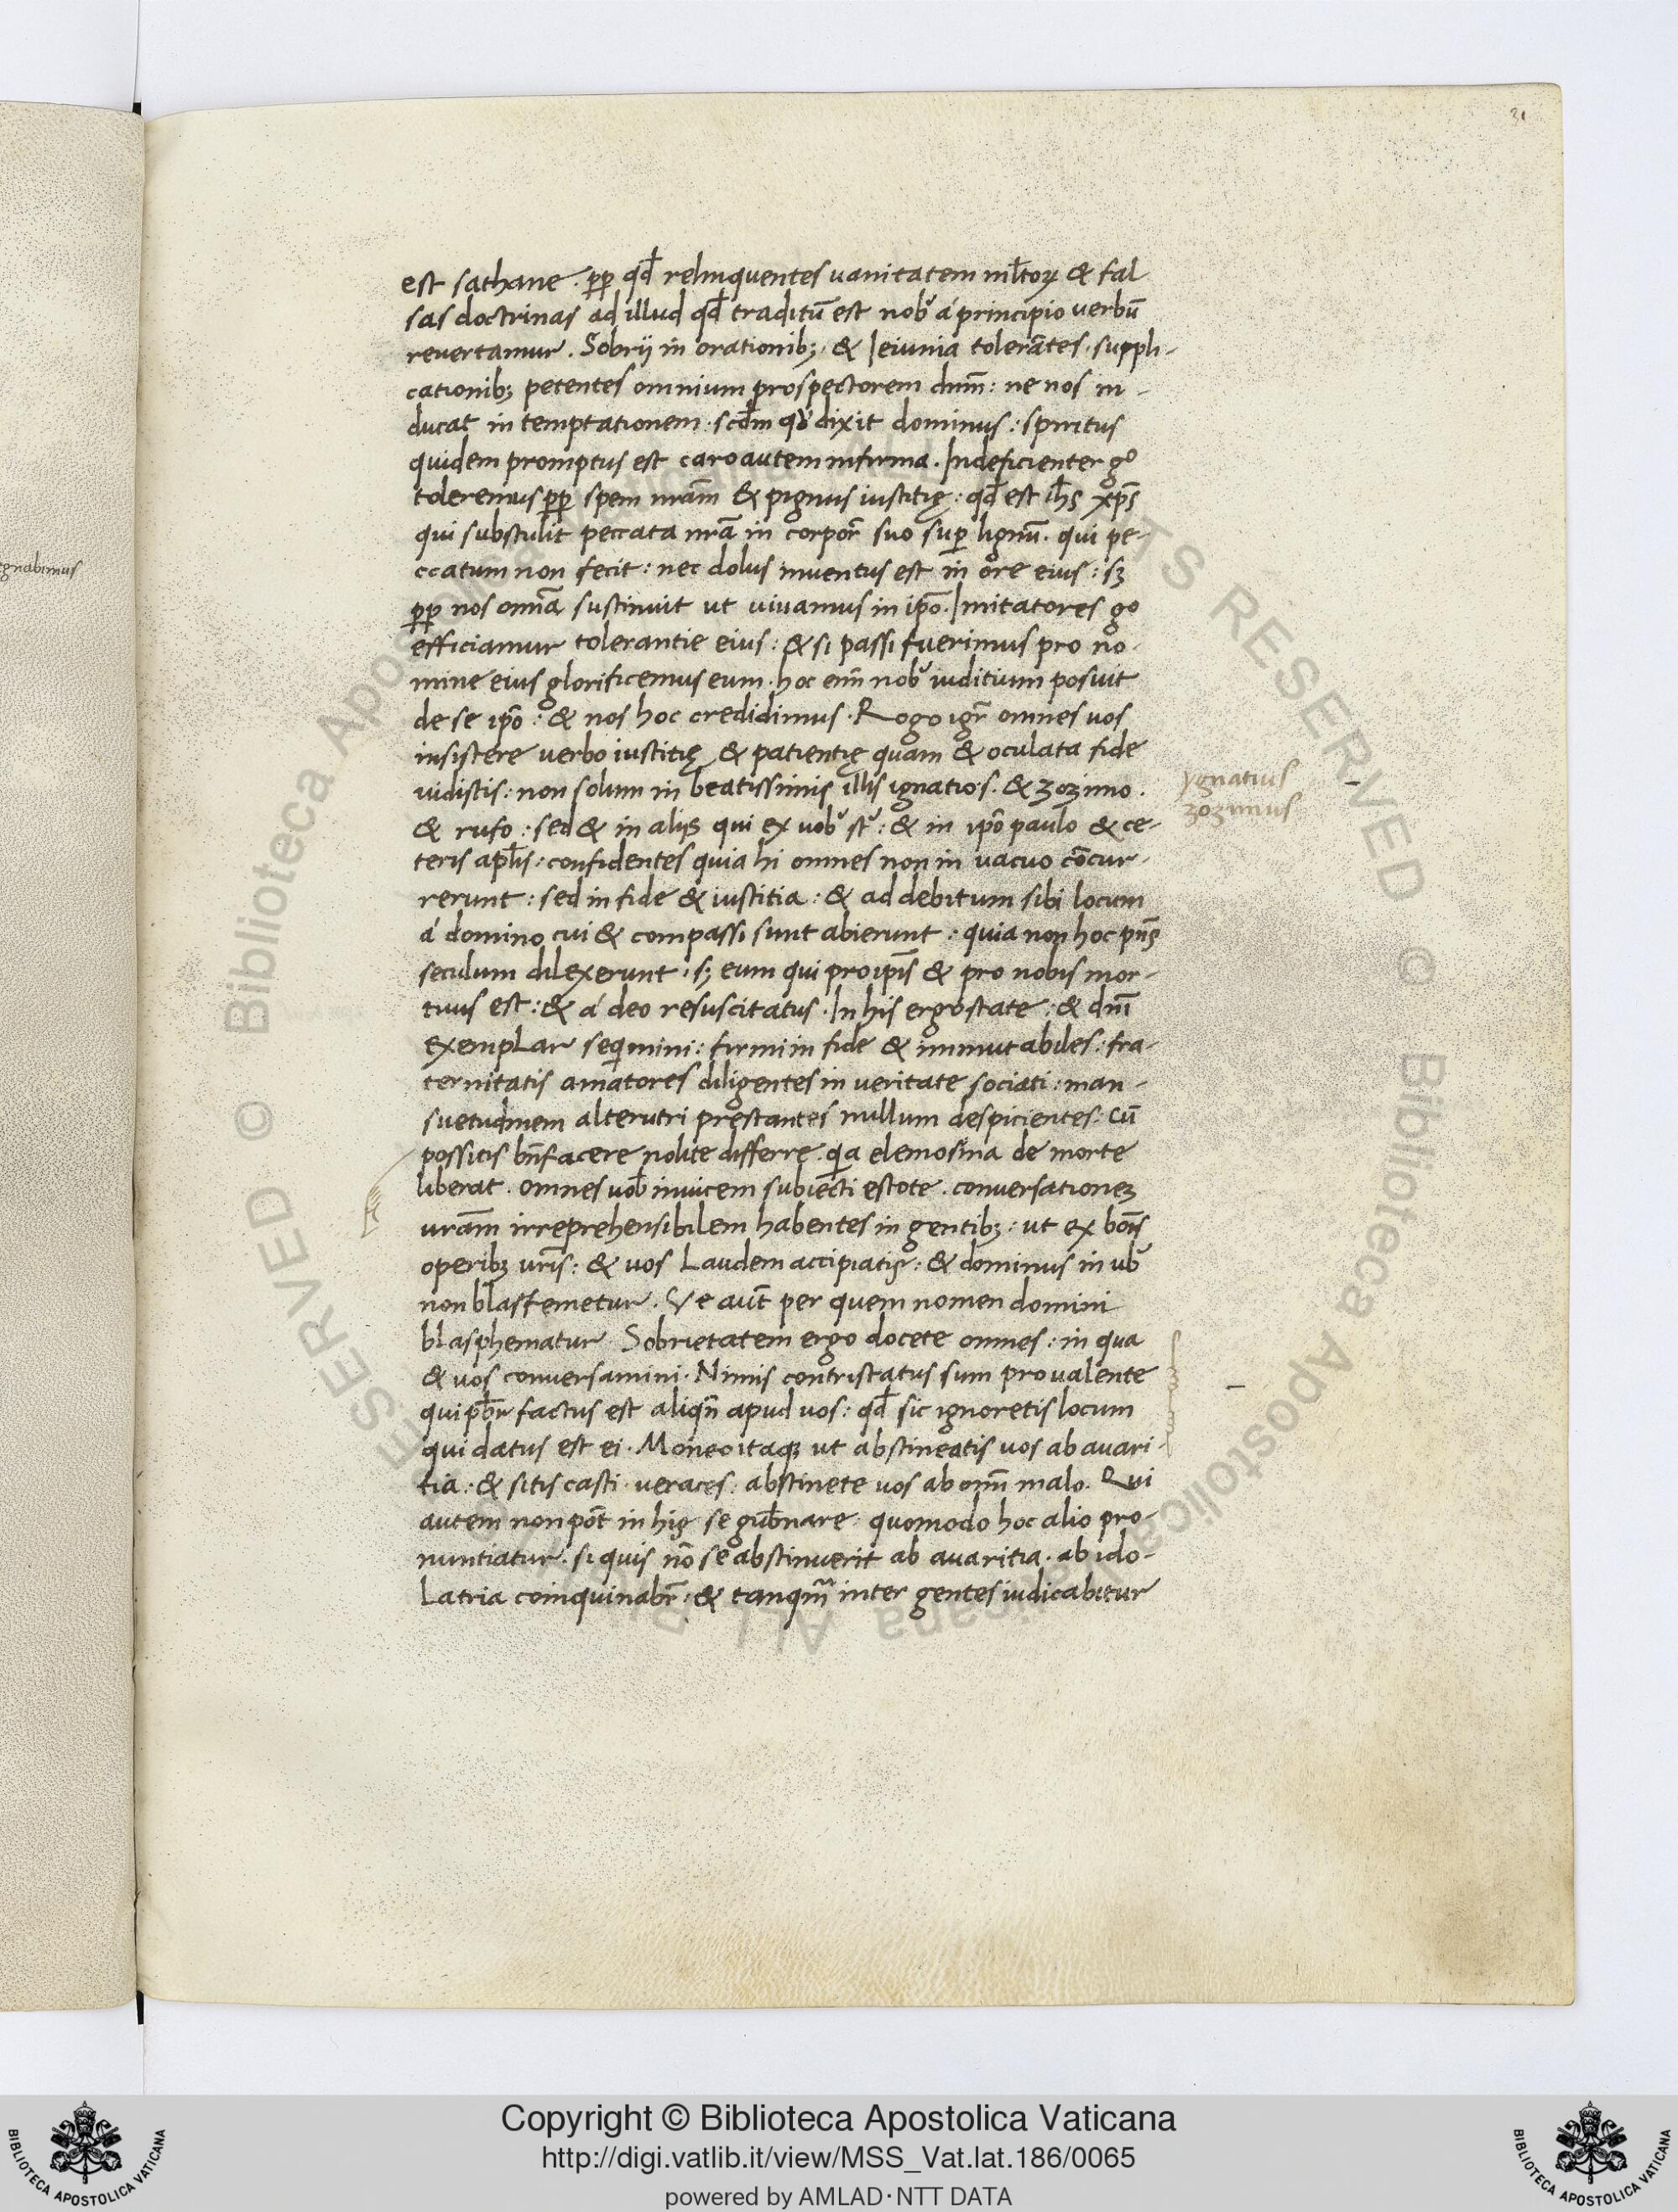 31
est sathane. ꝓꝑ qđ relinquentes uanitatem ml̄toꝝ & fal
sas doctrinas ad illud qđ traditū est nob᷒ á principio verbū
reuertamur. Sobrij in orationibꝫ. & Ieiunia tolerātes. suppli-
cationibꝫ petentes omnium prospectorem dn̄m: ne nos in-
ducat in temptationem. scd̄m qđ dixit dominus: spiritus
quidem promptus est caro autem infirma. Indeficienter gᵒ
toleremus ꝓꝑ spem nr̄am & pignus iustitię: qđ est ih̄s xp̄s
qui substulit peccata nr̄a in corpor̄ suo suꝑ lignū. qui pe-
ccatum non fecit: nec dolus inuentus est in ore eius: sꝫ
ꝓꝑ nos omīa sustinuit ut uiuamus in ip̄o. Imitatores go
efficiamur tolerantie eius: & si passi fuerimus pro no-
mine eius glorificemus eum. hoc eni᷒ nob᷒ iuditium posuit
de se ip̄o: & nos hoc credidimus. Rogo igr̄ omnes uos
insistere verbo iustitię & patientię quam & oculata fide
uidistis: non solum in beatissimis illis ignatio.s. & zozimo.
& rufo: sed & in alijs qui ex uob᷒ st᷒: & in ip̄o paulo & ce-
teris apl̄is: confidentes quia hi omnes non in uacuo cōcur-
rerunt: sed in fide & iustitia: & ad debitum sibi locum
á domino cui & compassi sunt abierunt: quia non hoc pn̄s
seculum dilexerunt. sꝫ eum qui pro ip̄is & pro nobis mor-
tuus est: & á deo resuscitatus. In his ergo state: & dn̄i
exemplar seqͥmini: firmi in fide & immutabiles: fra-
ternitatis amatores diligentes in veritate sociati: man-
suetudinem alterutri pręstantes nullum despicientes. Cū
possitis bn̄facere nolite differre. qͥa elemosina de morte
liberat. omnes uob᷒ inuicem subiecti estote. conuersationeꝫ
ur̄am irreprehensibilem habentes in gentibꝫ: ut ex bōis
operibꝫ ur̄is: & uos laudem accipiatis: & dominus in ub᷒
non blasfemetur. Ve aūt per quem nomen domini
blasphematur. Sobrietatem ergo docete omnes: in qua
& uos conuersamini. Nimis contristatus sum pro ualente
qui pb̄r factus est aliqn̄ apud uos: qđ sic ignoretis locum
qui datus est ei. Moneo itaqꝫ ut abstineatis uos ab auari-
tia: & sitis casti. veraces: abstinete uos ab omi᷒ malo. Qui
autem non pōt in his se gub̄nare. quomodo hoc alio pro-
nuntiatur. si quis nō se abstinuerit ab auaritia. ab ido-
latria coinquinabr̄: & tanqm̄ inter gentes iudicabitur
ygnatius
zozimus
egnabimus
Copyright © Biblioteca Apostolica Vaticana
http://digi.vatlib.it/view/MSS_Vat.lat.186/0065
powered by AMLAD·NTT DATA
BIBLIOTECA APOSTOLICA VATICANA
BIBLIOTECA APOSTOLICA VATICANA